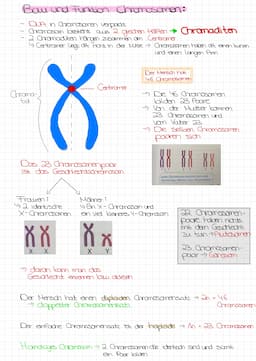 Bau und Funktion Chromosomen:
- DNA in Chromosomen verpackt
- Chromosom besteht aus 2 gleichen Hälften → Chromatiden
- 2 Chromatiden hängen zusammen am Centromer
→ Centromer liegt oft nicht in der Mitte → Chromosomen haben oft einen kurzen und einen langen Arm
Chroma-
tid
Centromer
Der Mensch hat
46 Chromosomen
→ Die 46 Chromosomen
bilden 23 Paare
→ Von der Mutter kommen
23 Chromosomen und
vom Vater 23
→ Die selben Chromosomen
paaren sich
Das 23 Chromosomenpaar
ist das Geschlechtschromosom
Frauen:
→ 2 identische
X-Chromosomen
Männer:
→ Ein X-Chromosom und
ein viel kleineres Y-Chromosom
X X
X Y
22 Chromosomen-
paare haben nichts
mit dem Geschlecht
zu tun → Autosomen
23. Chromosomen-
paar → Gonosom
→ daran kann man das
Geschlecht erkennen
Der Mensch hat einen diploiden Chromosomensatz → 2n = 46
Chromosomen
→ doppelter Chromosomensatz
Der einfache Chromosomensatz ist der haploide → 1n = 23 Chromosomen
Homologes Chromosom → 2 Chromosomen die identisch sind und somit
ein Paar bilden